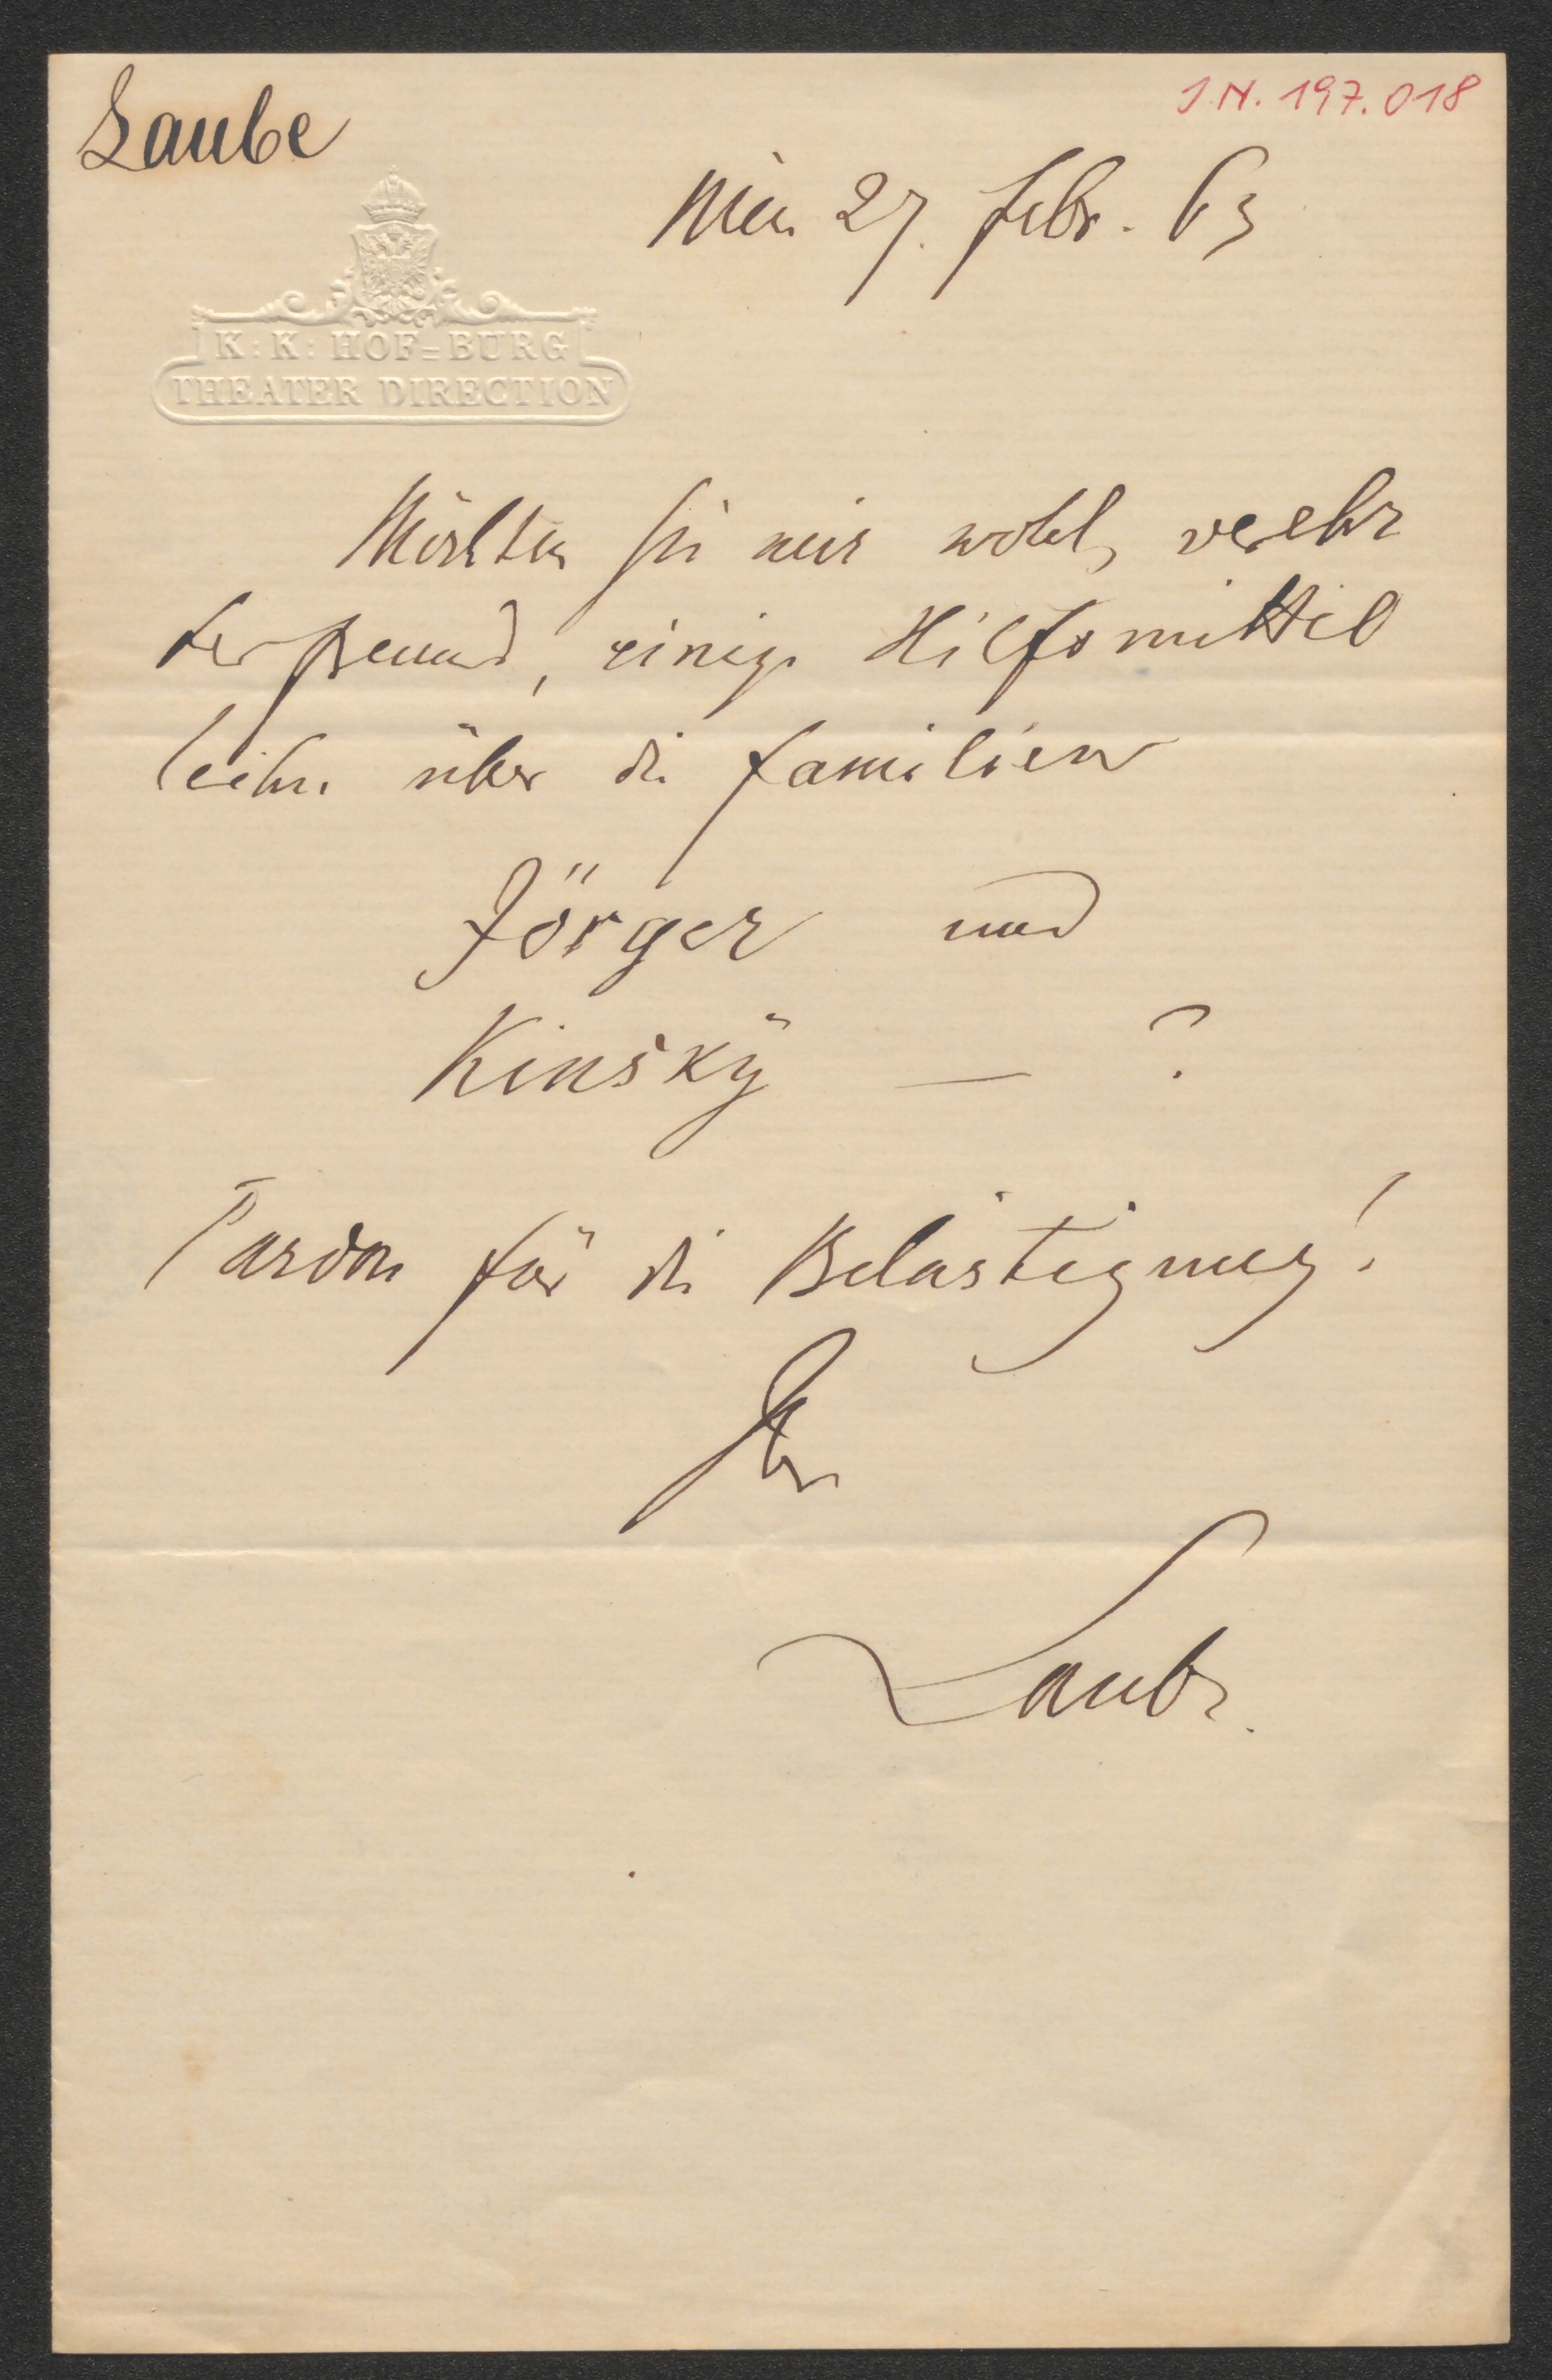 Laube
I.N. 197.018
Wien 27. Febr. 63
K: K: HOF=BURG
THEATER DIRECTION
Möchten Sie mir wohl, verehr
ter Freund, einige Hilfsmittel
leihen über die Familien
Jörger und
Kinsky — ?
Pardon für die Belästigung!
Ihr
Laube.